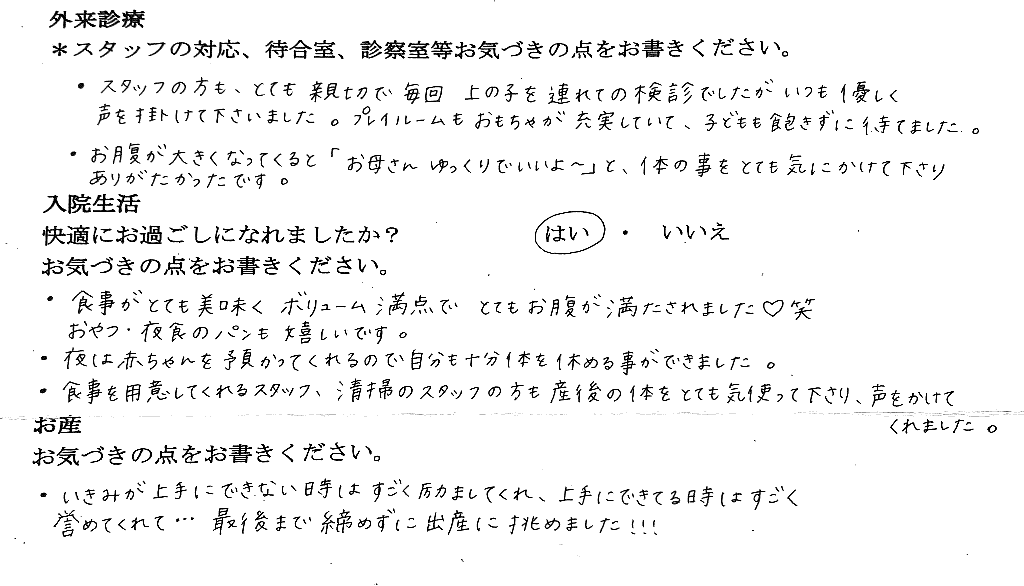 外来診療
＊スタッフの対応、待合室、診察室等お気づきの点をお書きください。
・スタッフの方も、とても 親切で 毎回 上の子を 連れての検診でしたが いつも優しく
声を掛けて下さいました。プレイルームもおもちゃが 充実していて、子どもも飽きずに待てました。
・お腹が大きくなってくると「お母さん ゆっくりでいいよ～」と、体の事をとても気にかけて下さり
ありがたかったです。
入院生活
快適にお過ごしになれましたか？ はい ・ いいえ
お気づきの点をお書きください。
・食事がとても美味く ボリューム満点で とてもお腹が満たされました♡笑
おやつ・夜食のパンも 嬉しいです。
・夜は赤ちゃんを預かってくれるので自分も十分体を休める事ができました。
・食事を用意してくれるスタッフ、清掃のスタッフの方も産後の体をとても気使って下さり、声をかけて
くれました。
お産
お気づきの点をお書きください。
・いきみが上手にできない時はすごく励ましてくれ、上手にできてる時はすごく
誉めてくれて… 最後まで締めずに出産に挑めました!!!